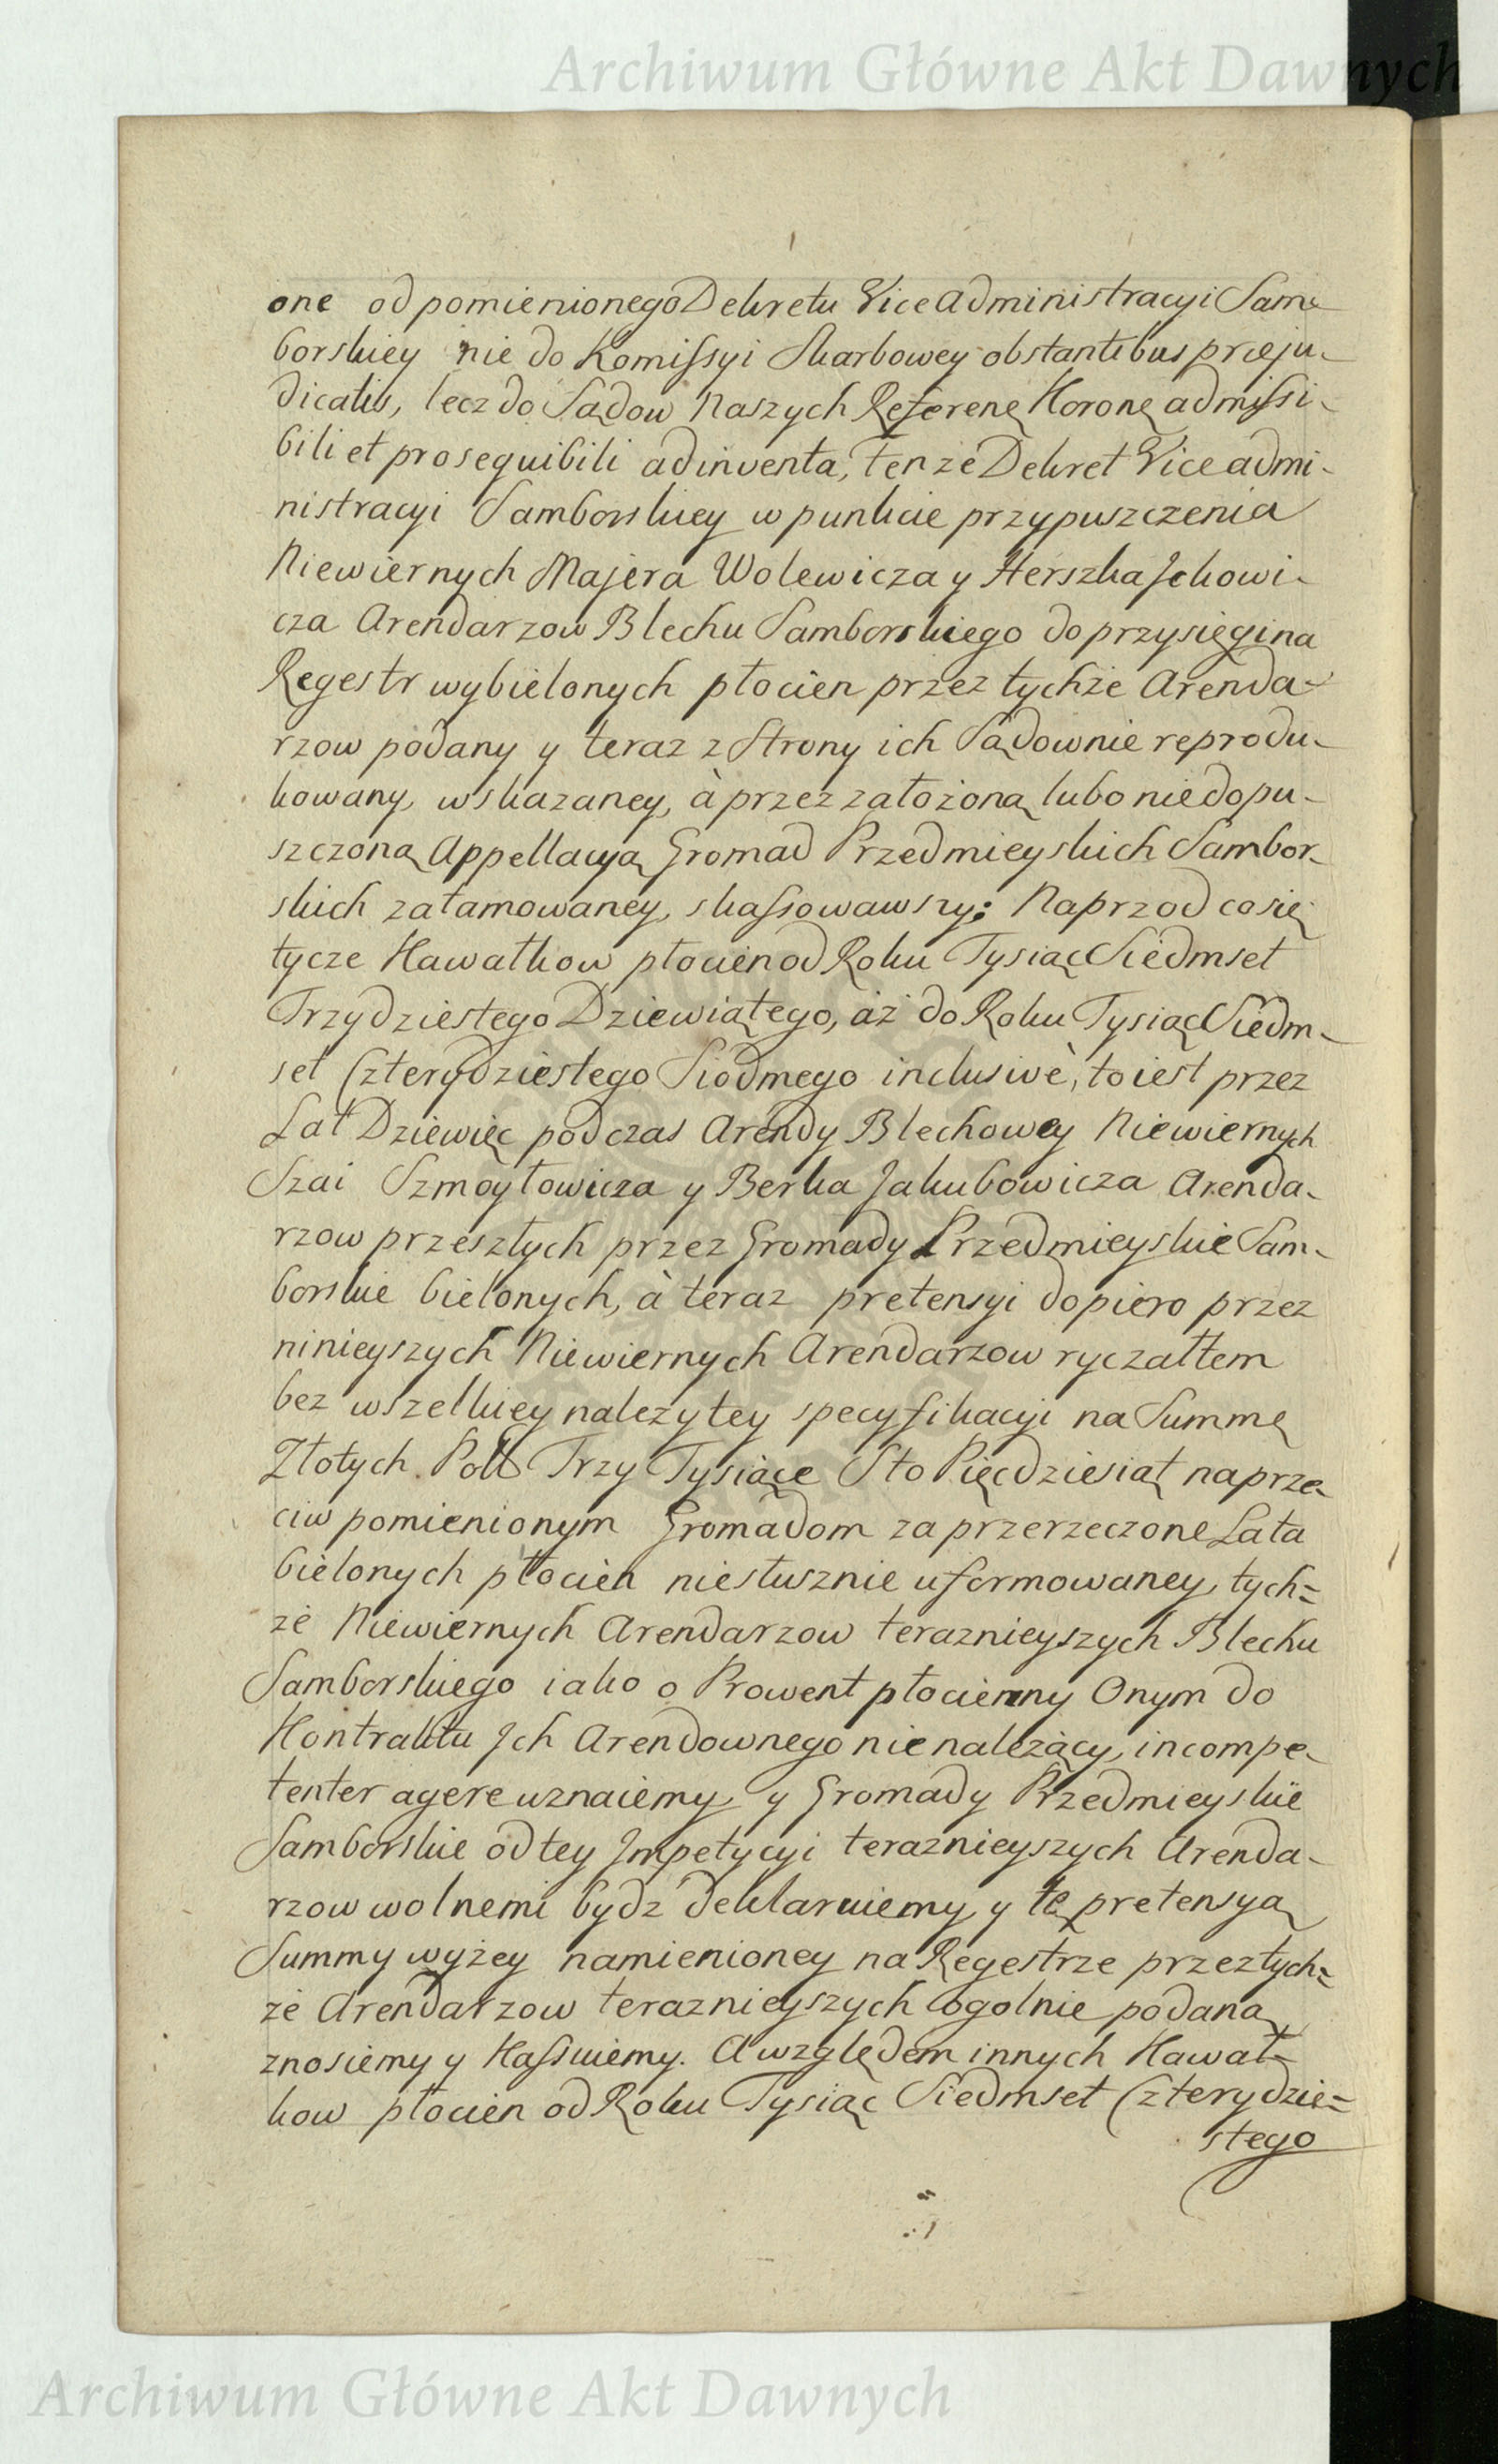 Archiwum Główne Akt Dawnych
one od pomienionego Dekretu Vice Administracyi Sam-
borskiey nie do Komissyi Skarbowey obstantibus præju-
dicatis, lecz do Sądow Naszych Referenę Koronę admissi-
bili et prosequibili ad inventa, tenże Dekret Vice admi-
nistracyi Samborskiey w punkcie przypuszczenia
Niewiernych Majera Wolewicza y Herszka Ickowi-
cza Arendarzow Blechu Samborskiego do przysięgi na
Regestr wybielonych płocien przez tychże Arenda-
rzow podany y teraz z Strony ich Sądownie reprodu-
kowany, wskazaney, à przez założoną lubo niedopu-
szczoną Appellacyą Gromad Przedmieyskich Sambor-
skich zatamowaney, skassowawszy; Naprzod co się
tycze Kawałkow płocien od Roku Tysiąc Siedmset
Trzydziestego Dziewiątego, aż do Roku Tysiąc Siedm-
set Czterydziestego Siodmego inclusivè, to iest przez
Lat Dziewięc podczas Arendy Blechowey Niewiernych
Szai Szmoyłowicza y Berka Jakubowicza Arenda-
rzow przeszłych przez Gromady Przedmieyskie Sam-
borskie bielonych, à teraz pretensyi dopiero przez
ninieyszych Niewiernych Arendarzow ryczałtem
bez wszelkiey należytey specyfikacyi na Summę
Złotych Poll Trzy Tysiące Sto Pięcdziesiąt naprze-
ciw pomienionym Gromadom za przerzeczone Lata
bielonych płocien niesłusznie uformowaney, tych=
że Niewiernych Arendarzow teraznieyszych Blechu
Samborskiego iako o Prowent płocienny Onym do
Kontraktu Ich Arendownego nienależący, incompe-
tenter agere uznaiemy, y Gromady Przedmieyskie
Samborskie od tey Impetycyi teraznieyszych Arenda-
rzow wolnemi bydz deklaruiemy, y tę pretensyą
Summy wyżey namienioney na Regestrze przez tych=
że Arendarzow teraznieyszych ogolnie podaną
znosiemy y Kassuiemy. A względem innych Kawał-
kow płocien od Roku Tysiąc Siedmset Czterydzie=
stego
Archiwum Główne Akt Dawnych